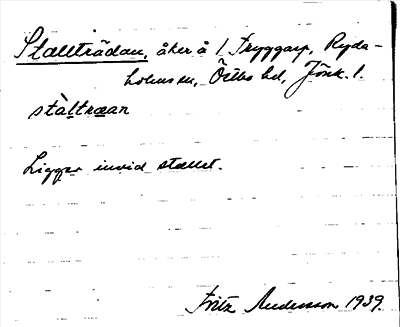 Stallträdan, åker å 1 Tryggarp, Ryda-
holms sn, Östbo hd, Jönk. l.
stàltræar
Ligger invid stallet.
Fritz Andersson 1939.